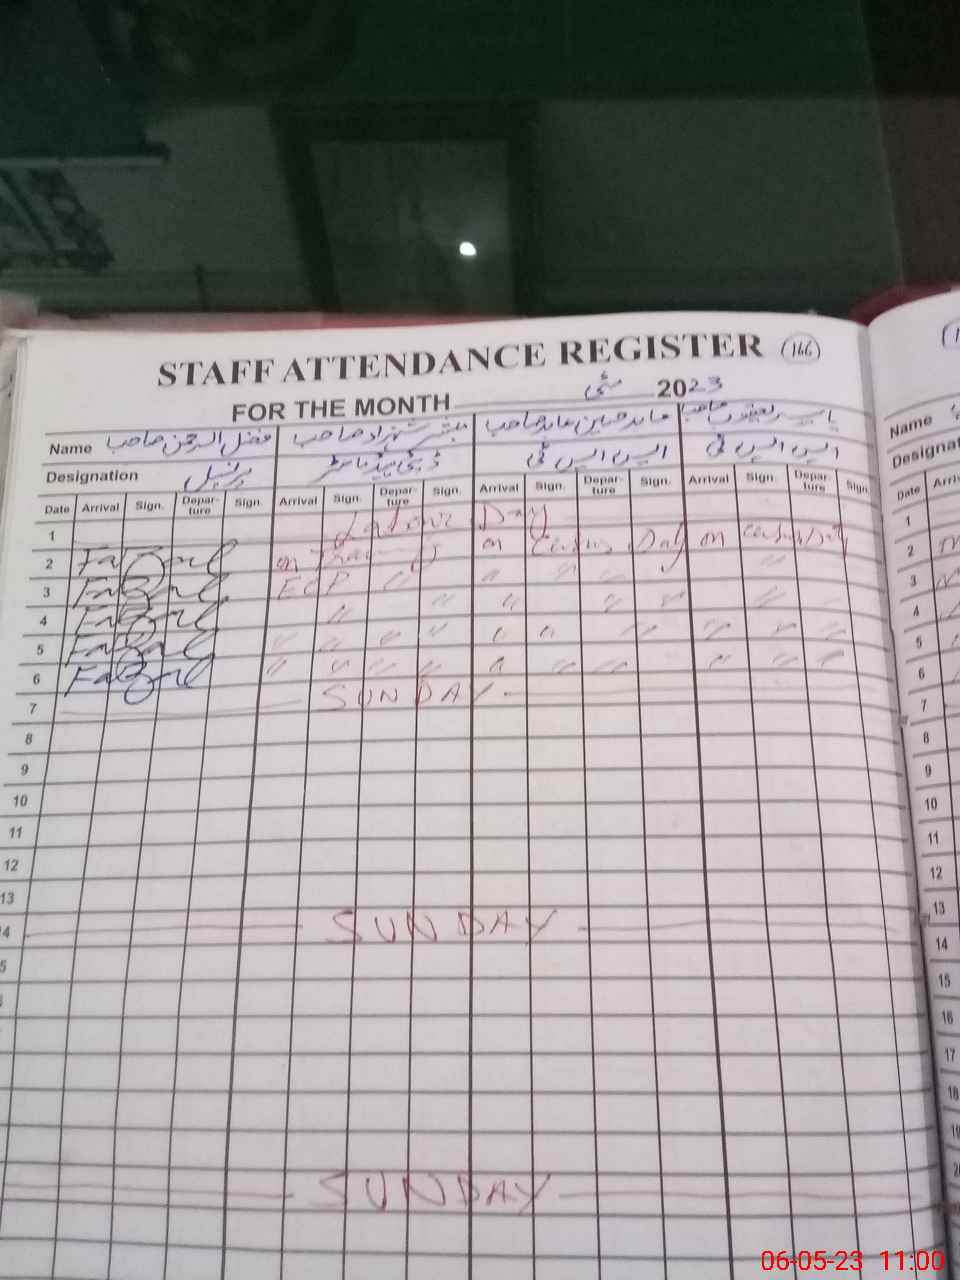 STAFF ATTENDANCE REGISTER 166
FOR THE MONTH مئی 2023
Name فضل الرحمن صاحب مبشر شہزاد صاحب عابد حسین عابد صاحب یاسر یعقوب صاحب Name
Designation پرنسپل ڈپٹی ہیڈ ماسٹر ایس ایس ٹی ایس ایس ٹی
Date Arrival Sign. Depar-ture Sign. Arrival Sign. Depar-ture Sign. Arrival Sign. Depar-ture Sign. Arrival Sign. Depar-ture Sign Date
1 Labour Day 1
2 Fazal on on Census Day on Census Day 2
3 Fazal ECP 〃 〃 〃 〃 〃 3
4 Fazal 〃 〃 〃 〃 〃 〃 4
5 Fazal 〃 〃 〃 〃 〃 〃 〃 〃 〃 〃 5
6 Fazal 〃 〃 〃 〃 〃 〃 〃 〃 〃 〃 6
7 SUNDAY 7
8 8
9 9
10 10
11 11
12 12
13 13
4 SUNDAY 14
5 15
16
17
18
19
20
SUNDAY
06-05-23 11:00